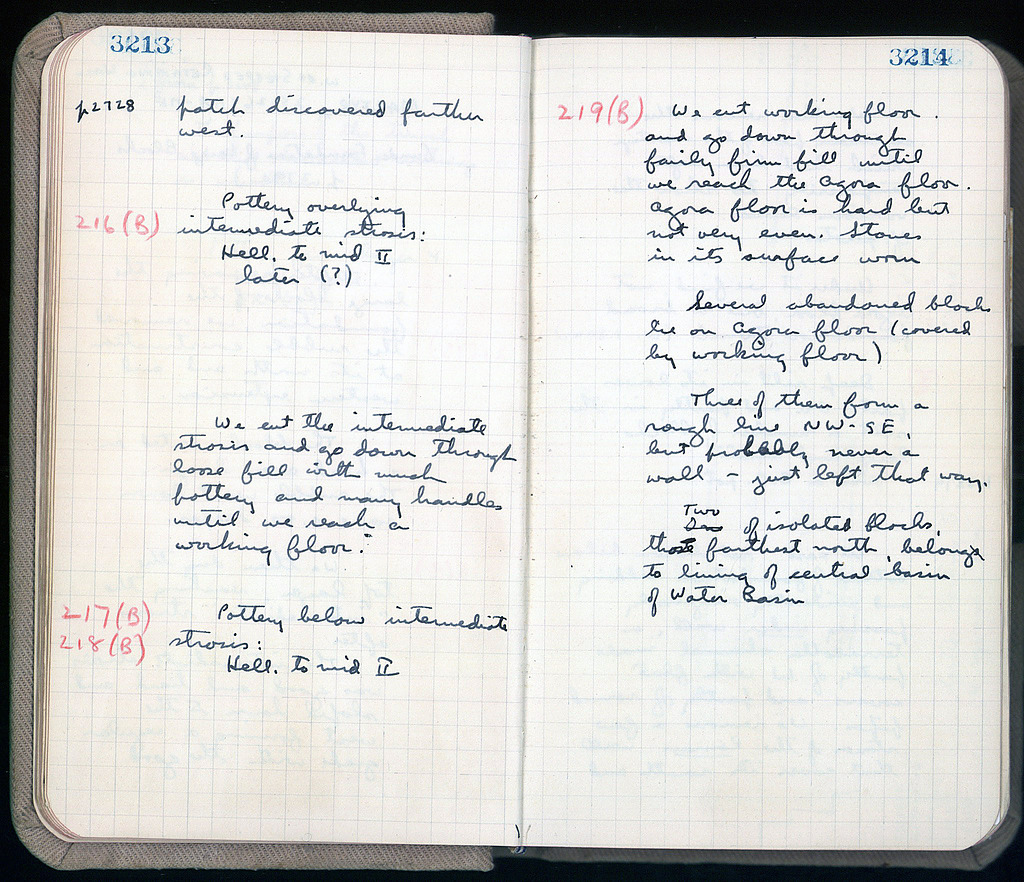 3213
p2728 patch discovered farther
west.
Pottery overlying
216(B) intermediate strosis:
Hell. to mid II
later (?)
We cut the intermediate
strosis and go down through
loose fill with much
pottery and many handles
until we reach a
working floor.
217(B) Pottery below intermediate
218(B) strosis:
Hell. to mid II
3214
219(B) We cut working floor.
and go down through
fairly firm fill until
we reach the agora floor.
agora floor is hard but
not very even. Stones
in its surface worn
Several abandoned blocks
lie on agora floor (covered
by working floor)
Three of them form a
rough line NW-SE,
but probably never a
wall - just left that way.
Two
of isolated blocks,
those farthest north, belongs
to lining of central basin
of Water Basin